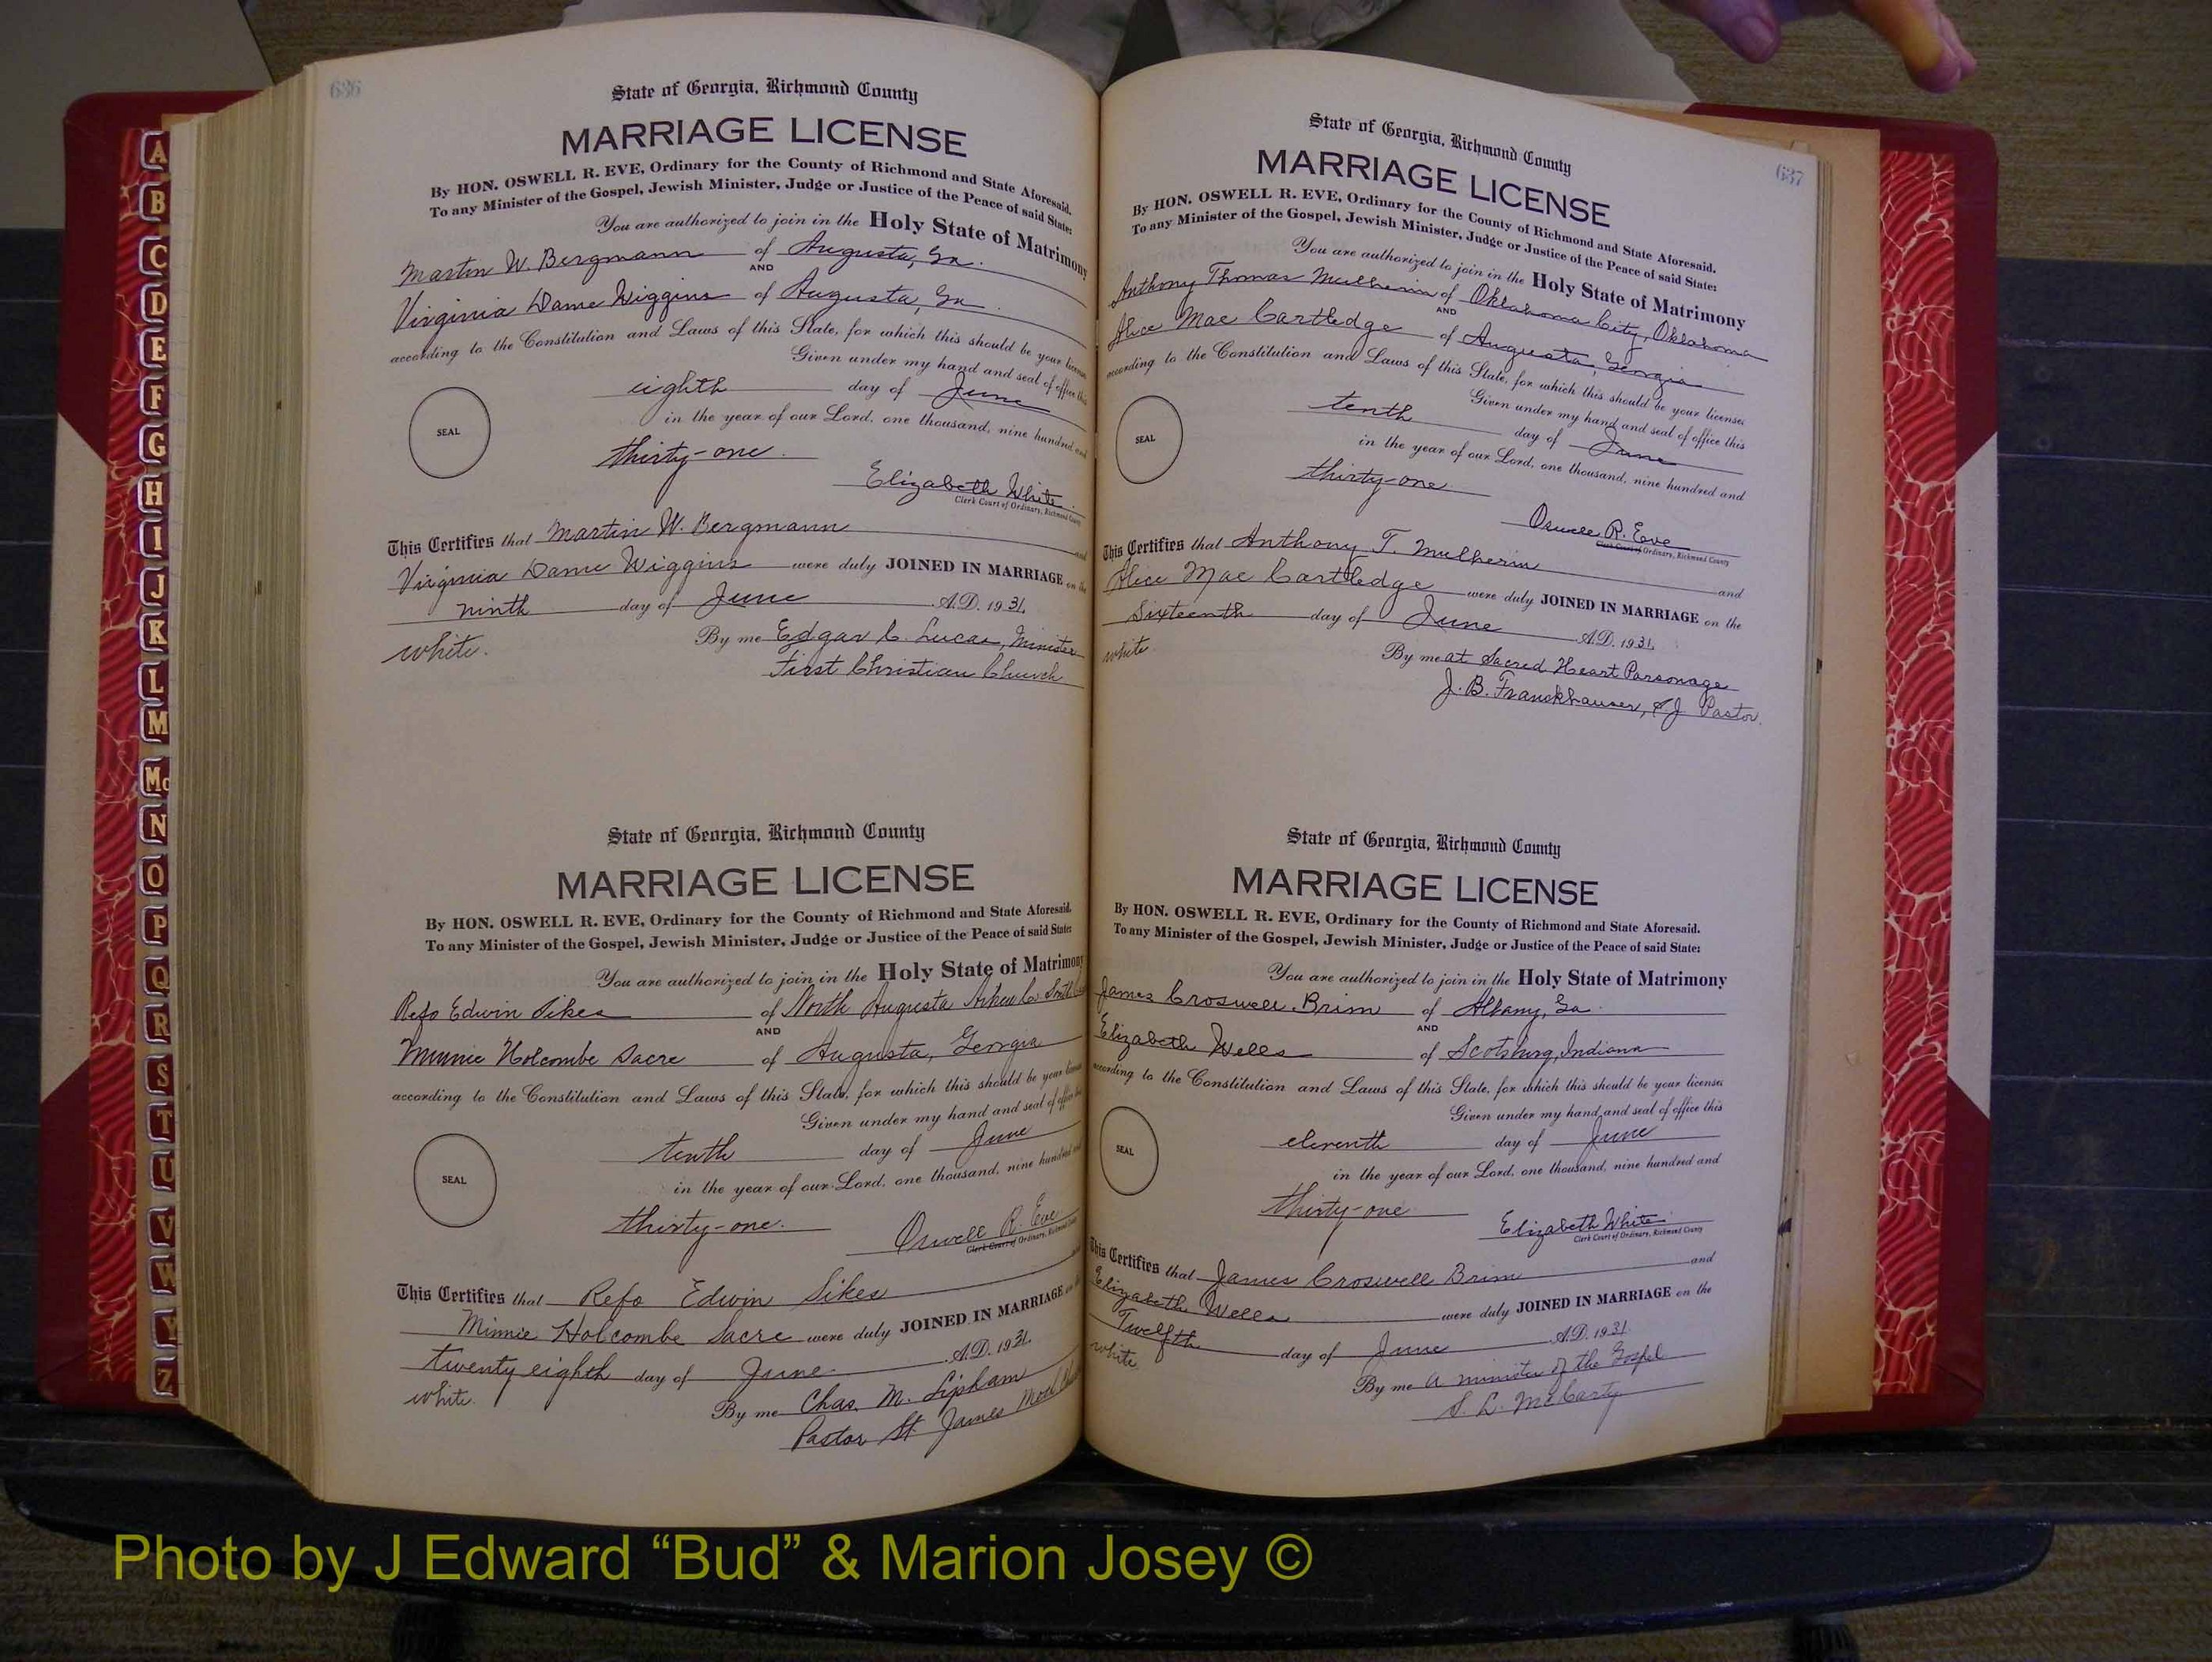 636
State of Georgia, Richmond County
MARRIAGE LICENSE
By HON. OSWELL R. EVE, Ordinary for the County of Richmond and State Aforesaid.
To any Minister of the Gospel, Jewish Minister, Judge or Justice of the Peace of said State:
You are authorized to join in the Holy State of Matrimony
Martin W. Bergmann of Augusta, Ga.
AND
Virginia Dame Wiggins of Augusta, Ga.
according to the Constitution and Laws of this State, for which this should be your license
Given under my hand and seal of office this
eighth day of June
SEAL
in the year of our Lord, one thousand, nine hundred and
thirty-one.
Elizabeth White
Clerk Court of Ordinary, Richmond County
This Certifies that Martin W. Bergmann and
Virginia Dame Wiggins were duly JOINED IN MARRIAGE on the
ninth day of June A.D. 1931.
white. By me Edgar C. Lucas, Minister
First Christian Church
State of Georgia, Richmond County
MARRIAGE LICENSE
By HON. OSWELL R. EVE, Ordinary for the County of Richmond and State Aforesaid.
To any Minister of the Gospel, Jewish Minister, Judge or Justice of the Peace of said State:
You are authorized to join in the Holy State of Matrimony
Refo Edwin Sikes of North Augusta Aiken Co
AND
Minnie Holcombe Sacre of Augusta, Georgia
according to the Constitution and Laws of this State, for which this should be your license
Given under my hand and seal of office this
tenth day of June
SEAL
in the year of our Lord, one thousand, nine hundred and
thirty-one.
Oswell R. Eve
Clerk Court of Ordinary, Richmond County
This Certifies that Refo Edwin Sikes
Minnie Holcombe Sacre were duly JOINED IN MARRIAGE on the
twenty eighth day of June A.D. 1931.
white. By me Chas. M. Lipham
Pastor St James Meth
637
State of Georgia, Richmond County
MARRIAGE LICENSE
By HON. OSWELL R. EVE, Ordinary for the County of Richmond and State Aforesaid.
To any Minister of the Gospel, Jewish Minister, Judge or Justice of the Peace of said State:
You are authorized to join in the Holy State of Matrimony
Anthony Thomas Mulherin of Oklahoma City, Oklahoma
AND
Alice Mae Cartledge of Augusta, Georgia
according to the Constitution and Laws of this State, for which this should be your license
Given under my hand and seal of office this
tenth day of June
SEAL
in the year of our Lord, one thousand, nine hundred and
thirty-one
Oswell R. Eve
Clerk Court of Ordinary, Richmond County
This Certifies that Anthony T. Mulherin and
Alice Mae Cartledge were duly JOINED IN MARRIAGE on the
Sixteenth day of June A.D. 1931.
white. By me at Sacred Heart Parsonage
J. B. Franckhauser, S.J. Pastor.
State of Georgia, Richmond County
MARRIAGE LICENSE
By HON. OSWELL R. EVE, Ordinary for the County of Richmond and State Aforesaid.
To any Minister of the Gospel, Jewish Minister, Judge or Justice of the Peace of said State:
You are authorized to join in the Holy State of Matrimony
James Croswell Brim of Albany, Ga.
AND
Elizabeth Wells of Scotsburg, Indiana
according to the Constitution and Laws of this State, for which this should be your license
Given under my hand and seal of office this
eleventh day of June
SEAL
in the year of our Lord, one thousand, nine hundred and
thirty-one
Elizabeth White
Clerk Court of Ordinary, Richmond County
This Certifies that James Croswell Brim and
Elizabeth Wells were duly JOINED IN MARRIAGE on the
Twelfth day of June A.D. 1931.
white. By me a minister of the Gospel
S. L. McCarty
A
B
C
D
E
F
G
H
I
J
K
L
M
Mc
N
O
P
Q
R
S
T
U
V
W
Y
Z
Photo by J Edward “Bud” & Marion Josey ©